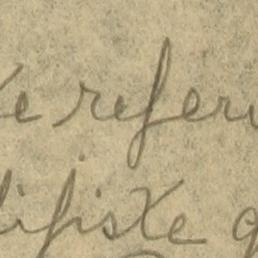 e referi
ifiske g